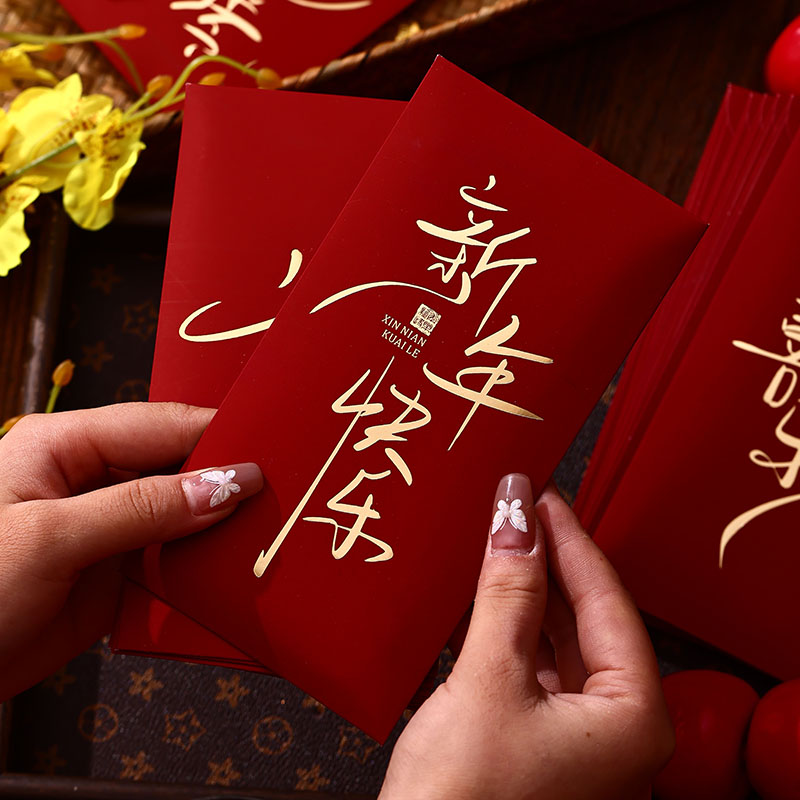 新年
XIN NIAN
KUAI LE
快乐